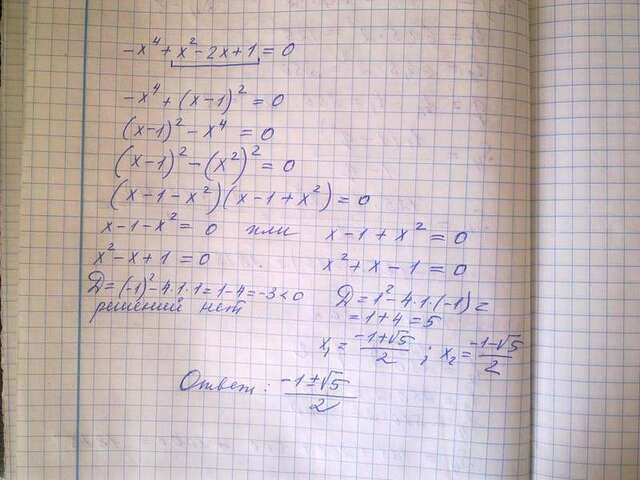 -x⁴ + x² - 2x + 1 = 0
-x⁴ + (x-1)² = 0
(x-1)² - x⁴ = 0
(x-1)² - (x²)² = 0
(x-1-x²)(x-1+x²) = 0
x-1-x² = 0 или x-1+x² = 0
x²-x+1 = 0 x²+x-1 = 0
D = (-1)²-4·1·1 = 1-4 = -3 < 0 D = 1²-4·1·(-1) =
решений нет = 1+4 = 5
x₁ = (-1+√5)/2 ; x₂ = (-1-√5)/2
Ответ: (-1±√5)/2